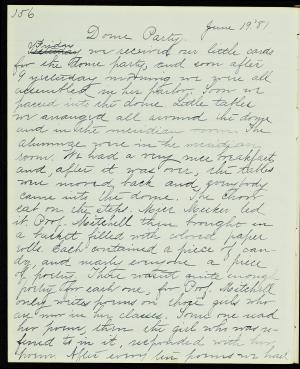 156
Dome Party. June 19 '81
Friday we received our little cards
for the Dome party, and soon after
9 yesterday morning we were all
assembled in her parlor. Soon we
passed into the dome. Little tables
were arranged all around the dome
and in the meridian room. The
alumnae were in the meridian
room. We had a very nice breakfast,
and, after it was over, the tables
were moved back and everybody
came into the dome. The choir
sat on the steps. Mejer led
it. Prof. Mitchell then brought in
a basket filled with colored paper
rolls. Each contained a piece of can-
dy, and nearly everyone a piece
of poetry. There wasn't quite enough
poetry for each one, for Prof. Mitchell
only writes poems on those girls who
are now in her classes. Some one read
her poem, then the girl who was re-
ferred to in it, responded with her
poem. After every ten poems we had